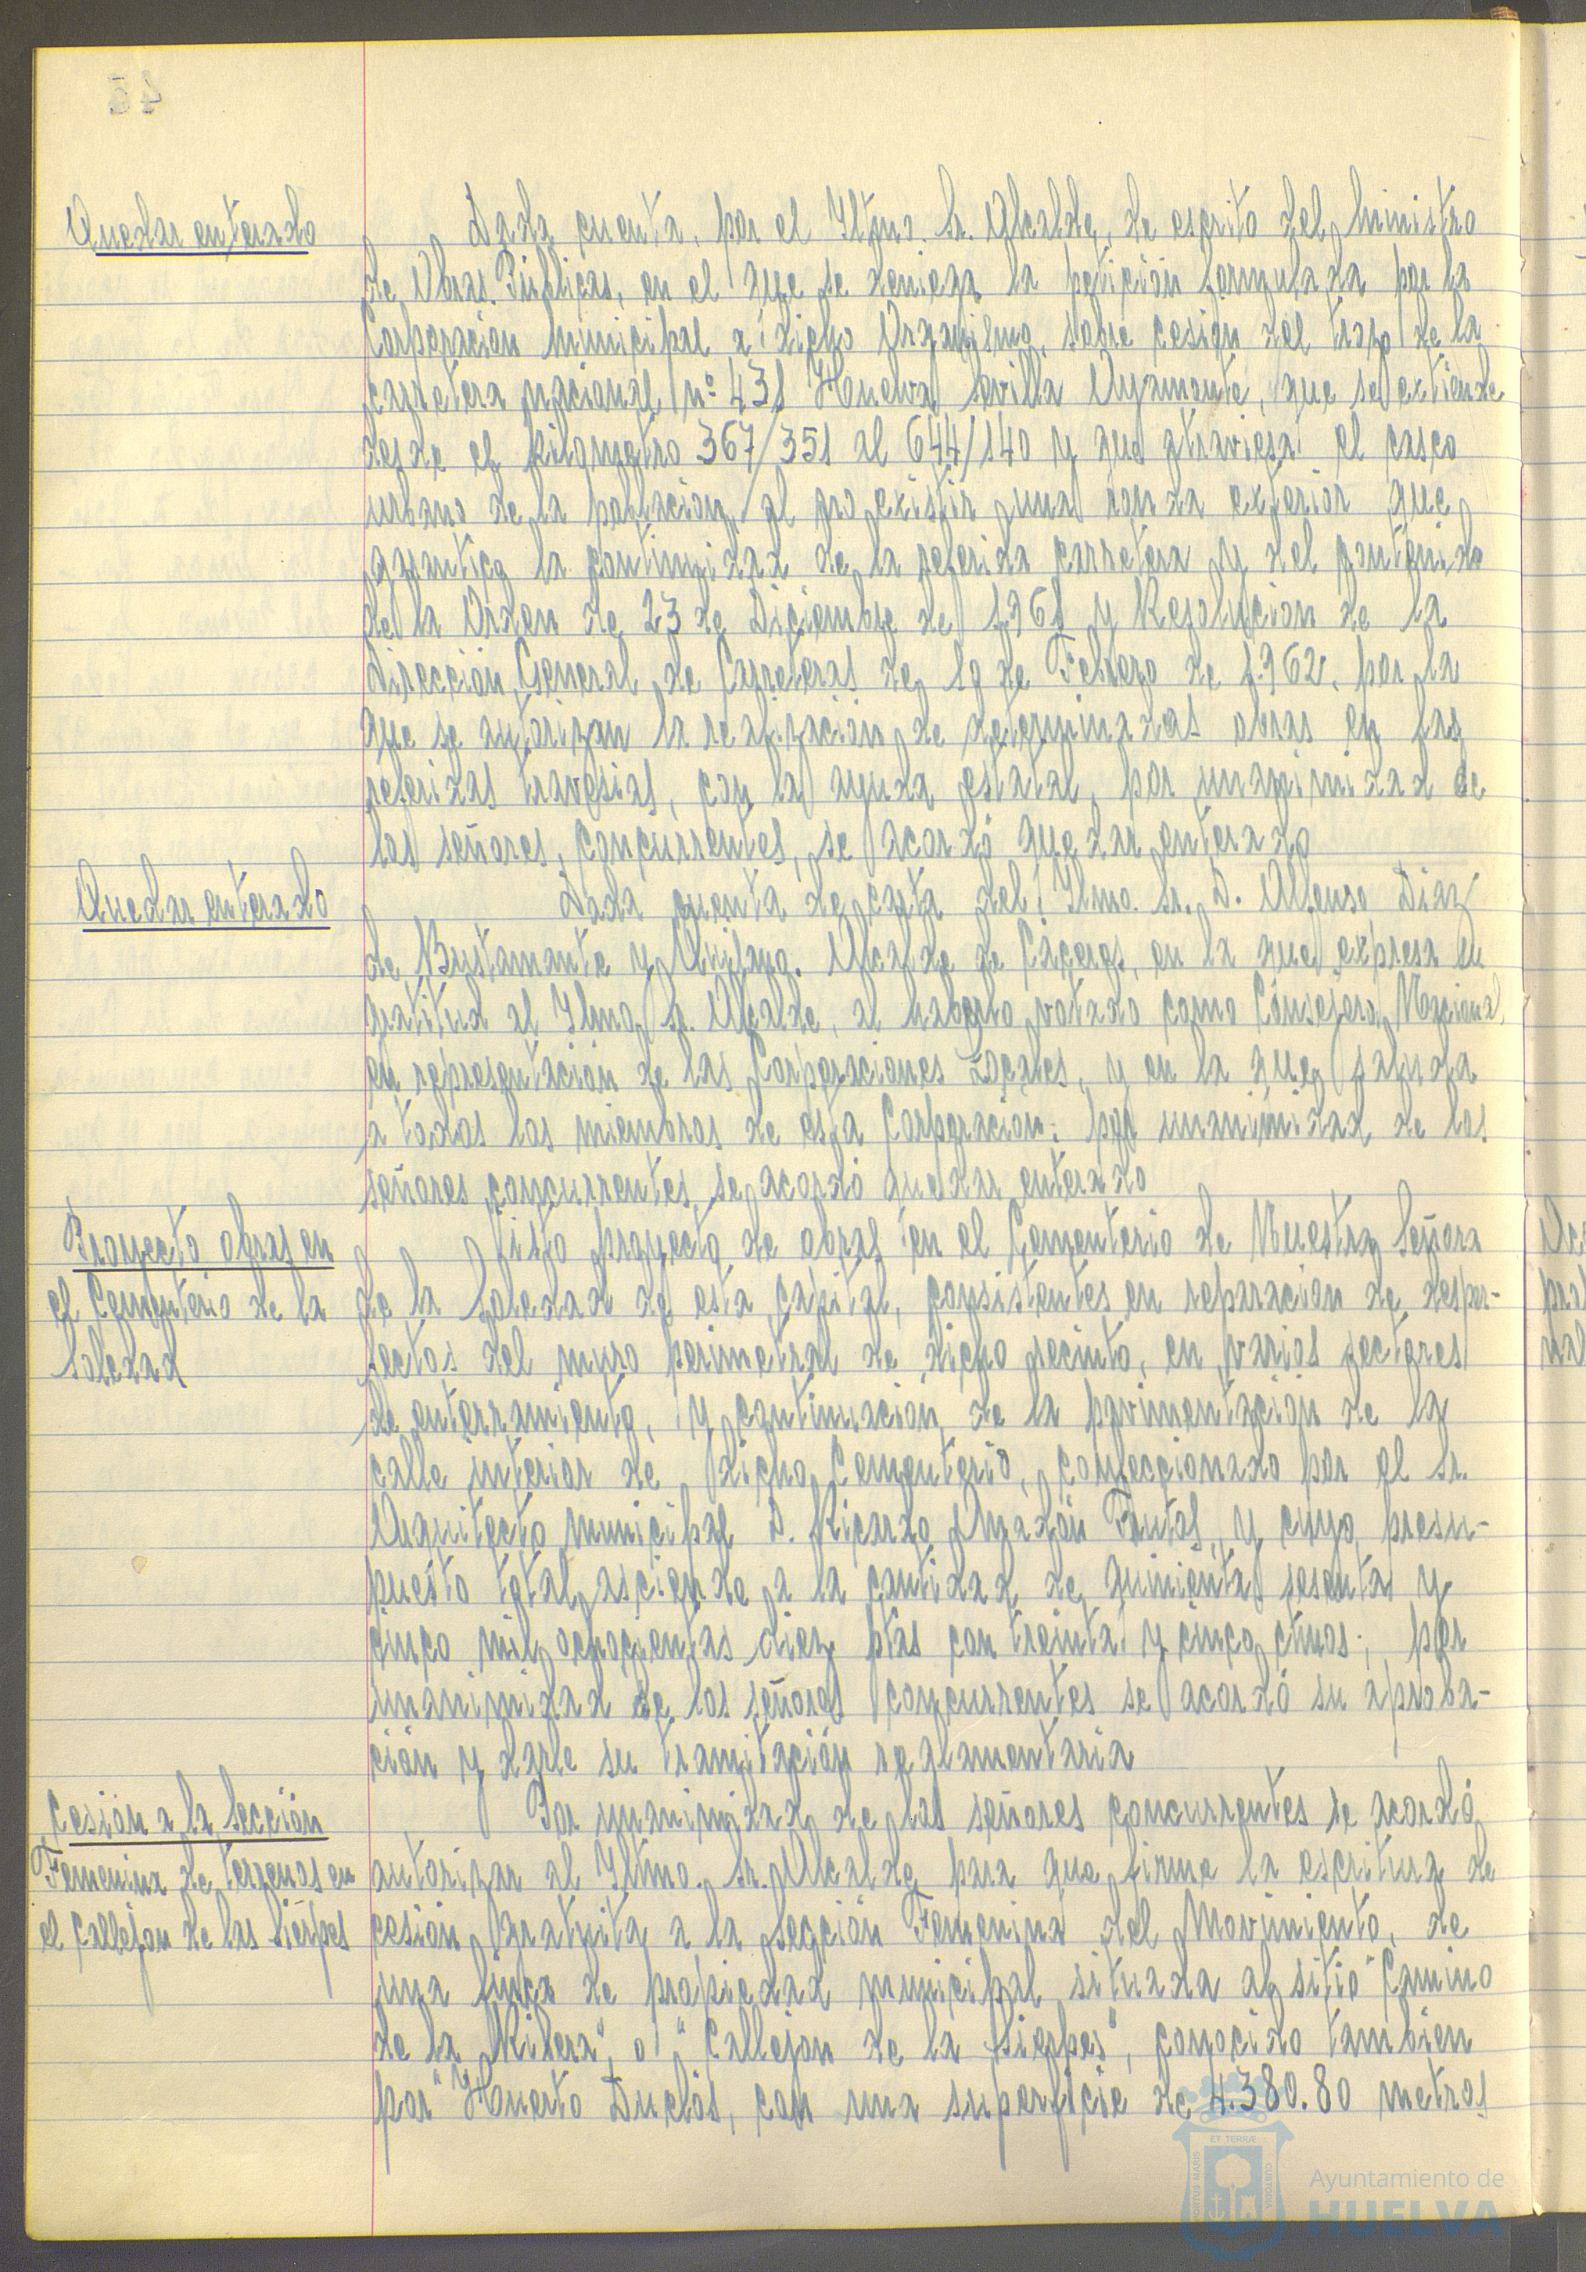 Quedar enterado
Dada cuenta, por el Iltmo. Sr. Alcalde, de escrito del Ministro
de Obras Públicas, en el que se deniega la petición formulada por la
Corporación Municipal a dicho Organismo, sobre cesión del trozo de la
carretera nacional nº 431 Huelva Sevilla Ayamonte, que se extiende
desde el kilometro 367/351 al 644/140 y que atraviesa el casco
urbano de la población, al no existir una ronda exterior que
garantice la continuidad de la referida carretera y del contenido
de la Orden de 23 de Diciembre de 1.961 y Resolucion de la
Dirección General de Carreteras de 19 de Febrero de 1.962, por la
que se autorizan la realización de determinadas obras en las
referidas travesias, con la ayuda estatal, por unanimidad de
los señores, concurrentes, se acordó quedar enterado
Quedar enterado
Dada cuenta de carta del Iltmo. Sr. D. Alfonso Diaz
de Bustamante y Quijano. Alcalde de Cáceres, en la que expresa su
gratitud al Iltmo. Sr. Alcalde, al haberlo votado como Consejero Nacional
en representación de las Corporaciones Locales, y en la que saluda
a todos los miembros de esta Corporación; por unanimidad, de los
señores concurrentes se acordó quedar enterado
Proyecto obras en
el Cementerio de la
Soledad
Visto proyecto de obras en el Cementerio de Nuestra Señora
de la Soledad de esta capital, consistentes en reparacion de desper-
fectos del muro perimetral de dicho recinto, en varios sectores
de enterramiento, y continuacion de la pavimentación de la
calle interior de dicho Cementerio, confeccionado por el Sr.
Arquitecto municipal D. Ricardo Anadón Frutos, y cuyo presu-
puesto total asciende a la cantidad de quinientas sesenta y
cinco mil ochocientas diez ptas con treinta y cinco ctmos.; por
unanimidad de los señores concurrentes se acordó su aproba-
ción y darle su tramitación reglamentaria
Cesión a la Sección
Femenina de terrenos en
el Callejon de las Sierpes
Por unanimidad de los señores concurrentes se acordó
autorizar al Iltmo. Sr. Alcalde para que firme la escritura de
cesión gratuita a la Sección Femenina del Movimiento, de
una finca de propiedad municipal situada al sitio "Camino
de la Ribera", o "Callejon de la Sierpes", conocido tambien
por "Huerto Duclós, con una superficie de 4.380.80 metros
Ayuntamiento de
HUELVA